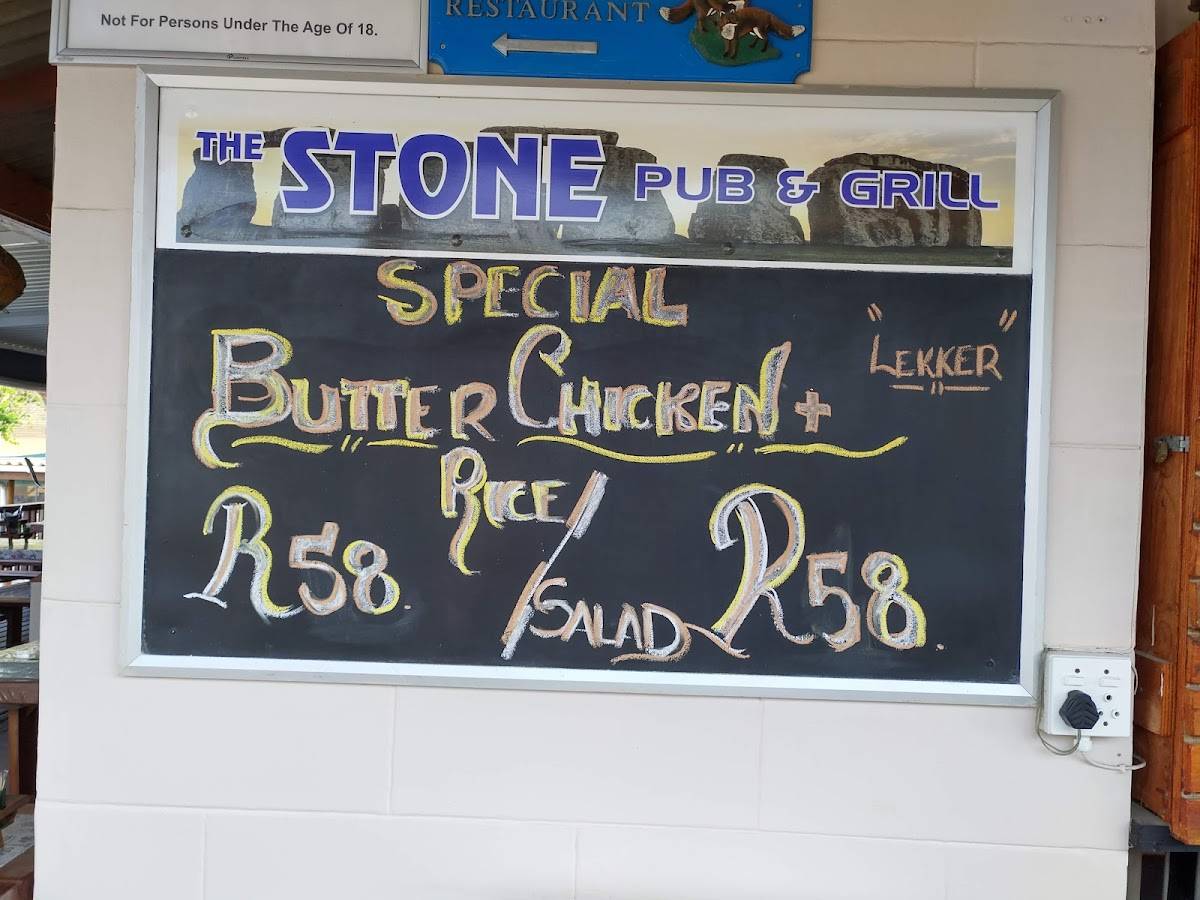 Not For Persons Under The Age Of 18.
RESTAURANT
THE STONE PUB & GRILL
SPECIAL
"LEKKER"
BUTTER CHICKEN +
RICE / SALAD
R58. R58.